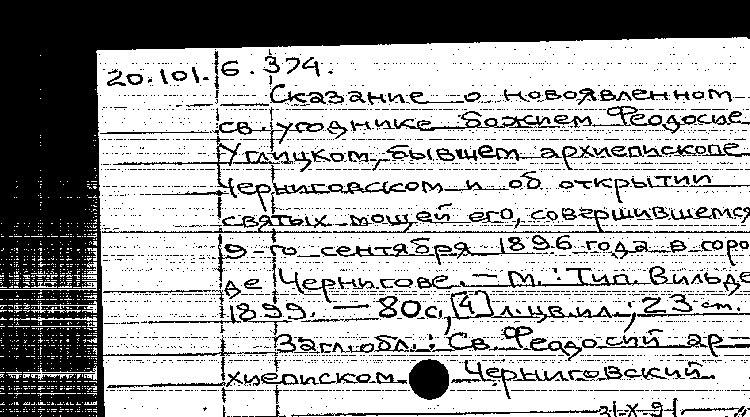 20.101. 6.374.
Сказание о новоявленном
св. угоднике Божием Феодосие
Углицком, бывшем архиепископе
Черниговском и об открытии
святых мощей его, совершившемся
9-го сентября 1896 года в горо
де Чернигове. — М.: Тип. Вильде
1899. — 80с., [4] л. цв. ил.; 23 см.
Загл. обл.: Св. Феодосий ар-
хиепископ Черниговский.
31-X-91